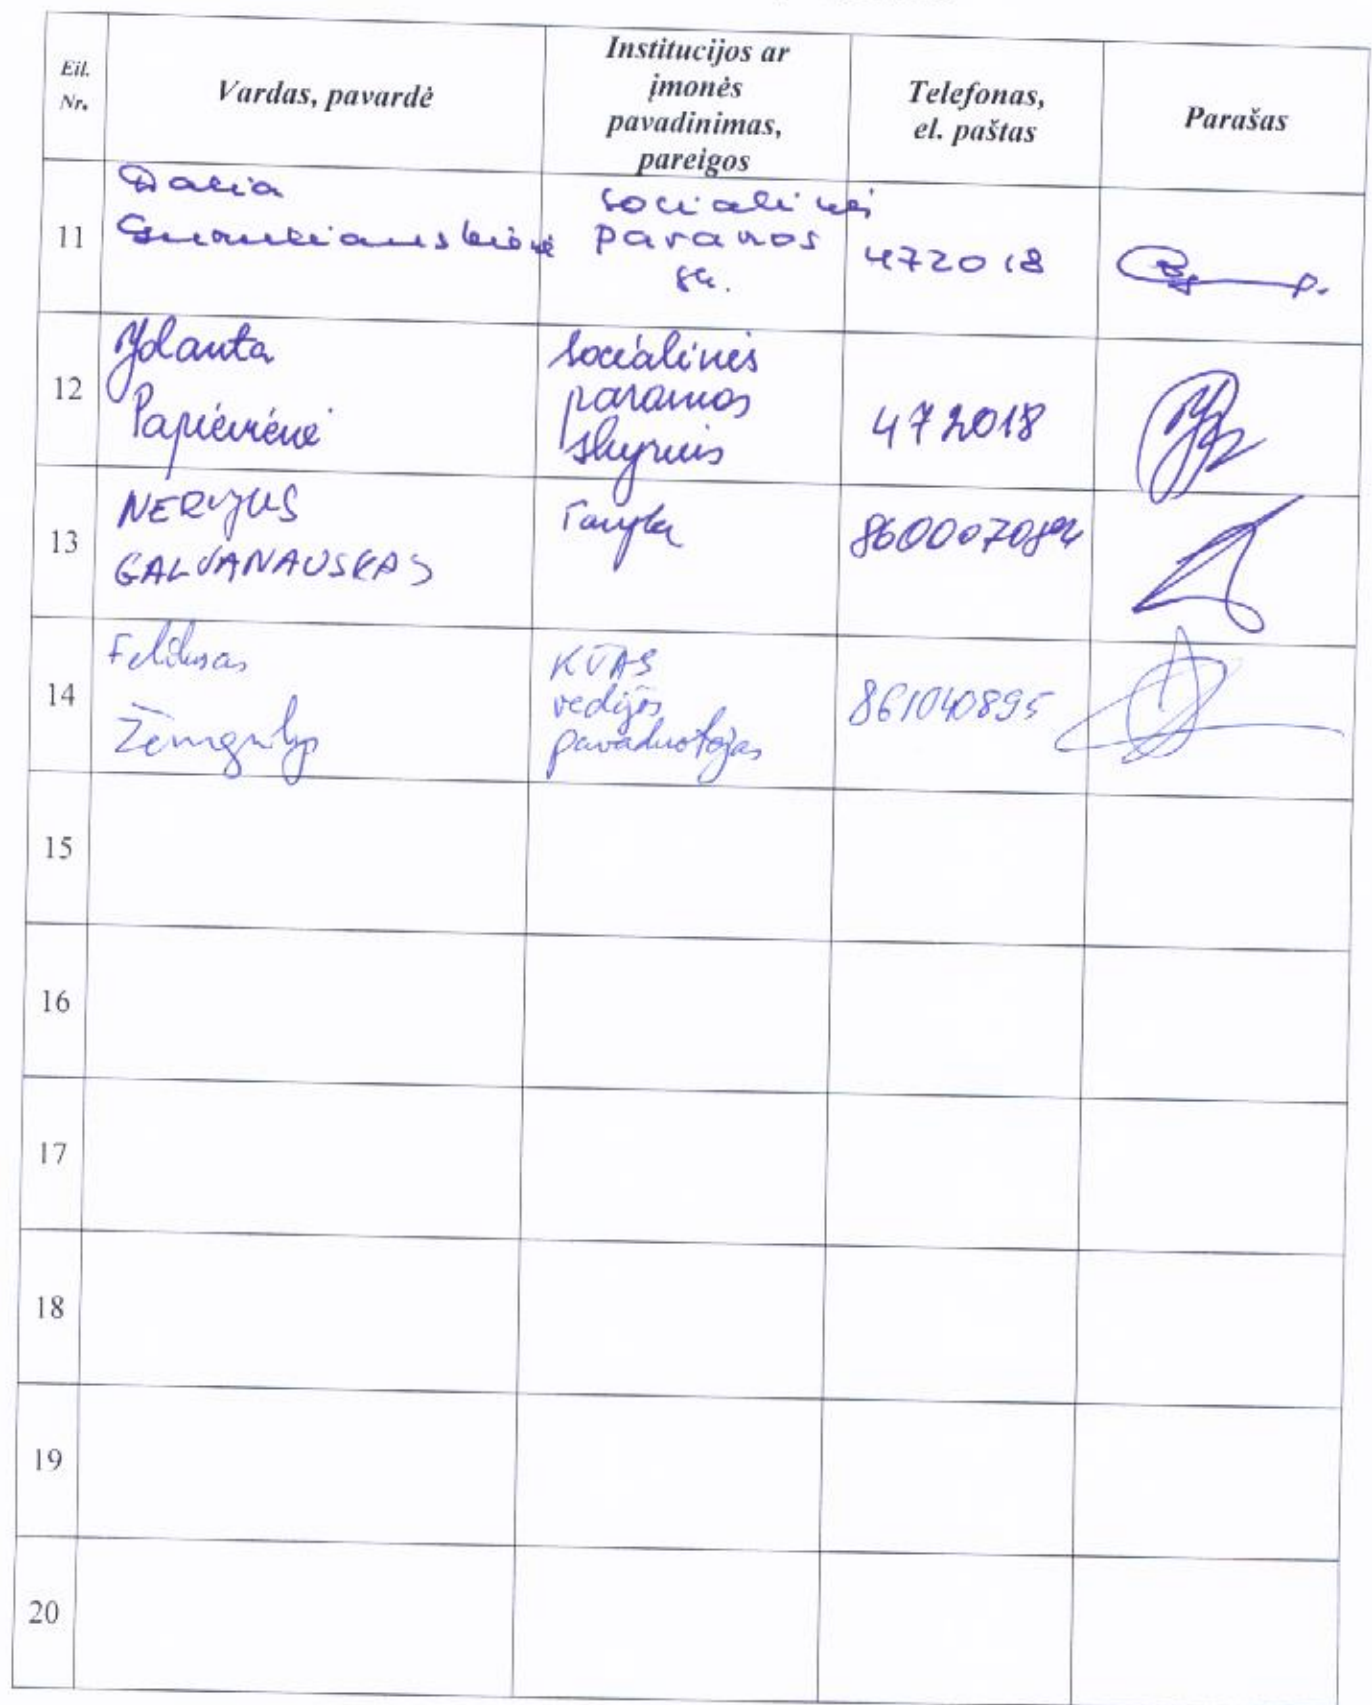 Eil. Nr.
Vardas, pavardė
Institucijos ar
įmonės
pavadinimas,
pareigos
Telefonas,
el. paštas
Parašas
11
Dalia
socialinės
paramos
sk.
472018
12
Jolanta
Papievienė
Socialinės
paramos
skyrius
472018
13
NERIJUS
GALVANAUSKAS
Taryba
14
Feliksas
Žemgulys
KVAS
vedėjos
pavaduotojas
861040895
15
16
17
18
19
20